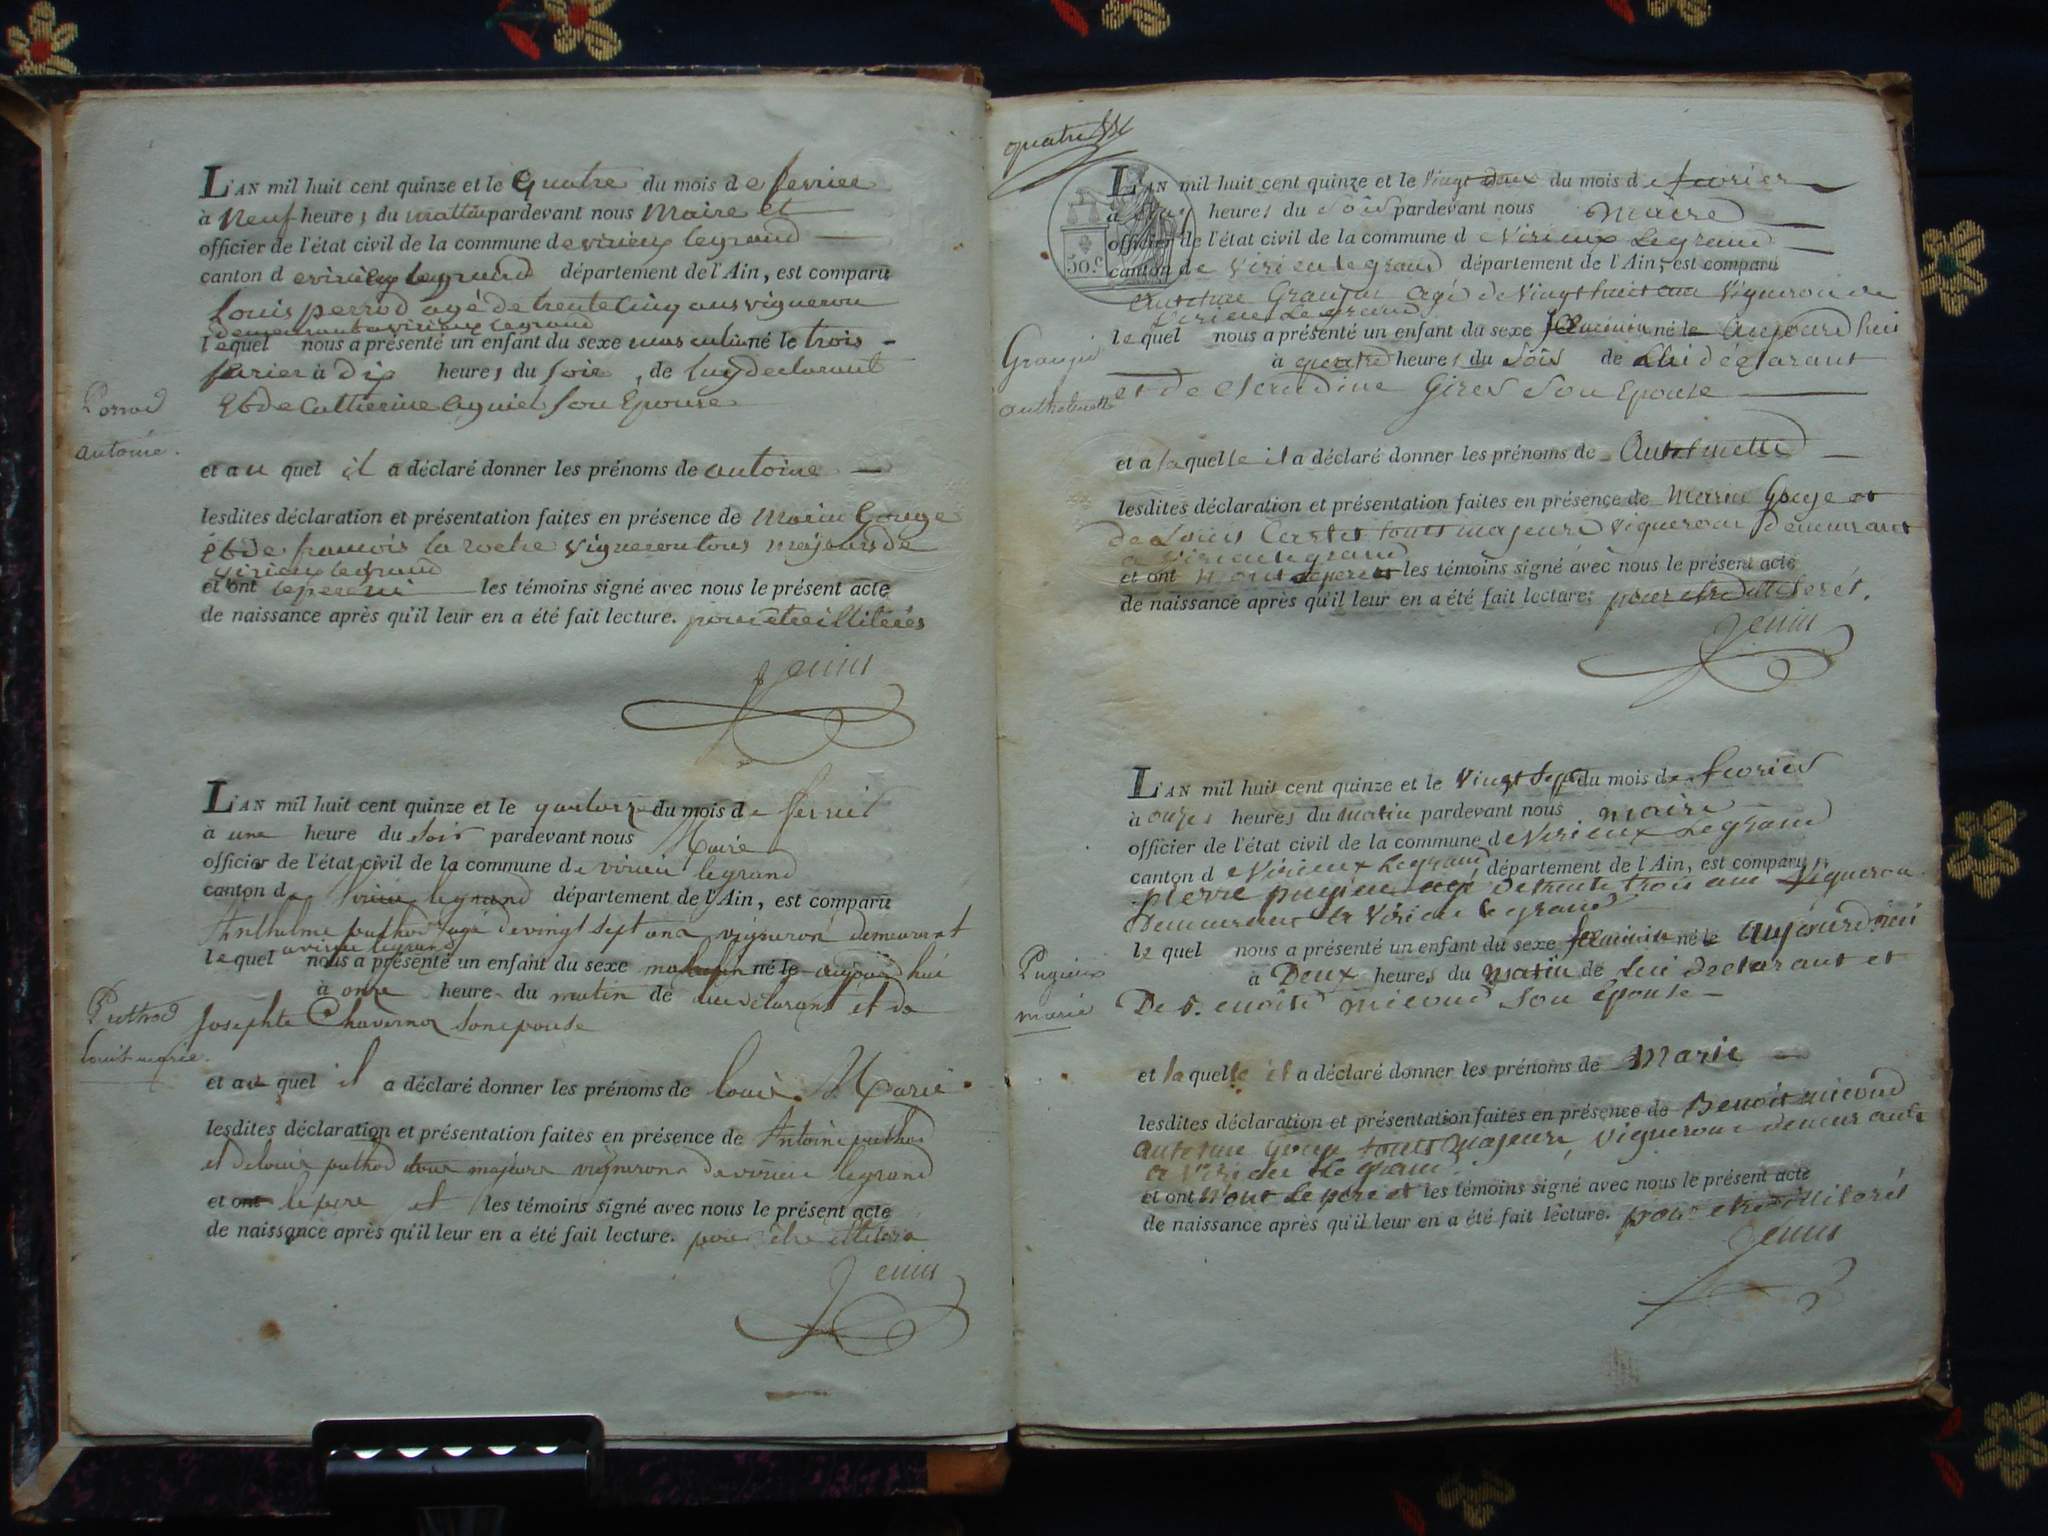 L'AN mil huit cent quinze et le quatre du mois de fevrier
à Neuf heures du mattin pardevant nous Maire et
officier de l'état civil de la commune de virieux legrand
canton de virieux legrand département de l'Ain, est comparu
Louis perrod agé de trente cinq ans vigneron
demeurant a virieux legrand
lequel nous a présenté un enfant du sexe masculin né le trois
fevrier à dix heures du soir, de luy declarant
Et de Catherine son Epouse
Perrod
antoine.
et au quel il a déclaré donner les prénoms de antoine
lesdites déclaration et présentation faites en présence de Gouge
Et de francois la roche vigneron tous majeurs de
virieux legrand
et ont le pere ni les témoins signé avec nous le présent acte
de naissance après qu'il leur en a été fait lecture. pour etre illiterés
Jenin
L'AN mil huit cent quinze et le quatorze du mois de fevrier
à une heure du soir pardevant nous Maire
officier de l'état civil de la commune de virieu legrand
canton de virieu legrand département de l'Ain, est comparu
Anthelme puthod agé de vingt sept ans vigneron demeurant
a virieu legrand
lequel nous a présenté un enfant du sexe masculin né le aujourd'hui
à onze heure du matin de lui declarant et de
Josephte Chavernoz son epouse
Puthod
Louis marie.
et au quel il a déclaré donner les prénoms de louis Marie
lesdites déclaration et présentation faites en présence de Antoine puthod
et de louis puthod tous majeurs vignerons de virieu legrand
et ont le pere et les témoins signé avec nous le présent acte
de naissance après qu'il leur en a été fait lecture. pour être illiteré
Jenin
quatre
50.c
L'AN mil huit cent quinze et le vingt deux du mois de fevrier
à heures du sois pardevant nous maire
officier de l'état civil de la commune de Virieux Legrand
canton de Virieu le grand département de l'Ain, est comparu
Antelme agé de Vingt huit ans Vigneron de
Virieu Le grand
le quel nous a présenté un enfant du sexe feminin né le aujourd'hui
à quatre heures du sois de Lui déclarant
et de Claudine son Epouse
anthelmette
et a laquelle il a déclaré donner les prénoms de Antelmette
lesdites déclaration et présentation faites en présence de Gouge et
de Louis touts majeurs vigneron demeurant
a Virieu le grand
et ont n'ont le pere et les témoins signé avec nous le présent acte
de naissance après qu'il leur en a été fait lecture. pour etre illiterés.
Jenin
L'AN mil huit cent quinze et le vingt sept du mois de fevrier
à onzes heures du matin pardevant nous maire
officier de l'état civil de la commune de Virieux Le grand
canton de Virieux Le grand département de l'Ain, est comparu
pierre agé de trente trois ans Vigneron
Demeurant a Virieu le grand
le quel nous a présenté un enfant du sexe feminin né le aujourd'hui
à Deux heures du matin de Lui declarant et
De Benoite micoud son Epouse
marie
et laquelle il a déclaré donner les prénoms de Marie
lesdites déclaration et présentation faites en présence de Benoit micoud
Antelme Gouge touts majeurs, vigneron demeurant
a Virieu Le grand.
et ont n'ont Le pere et les témoins signé avec nous le présent acte
de naissance après qu'il leur en a été fait lecture. pour etre illiterés
Jenin